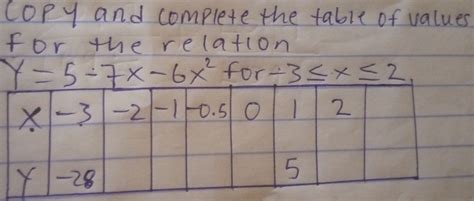 COPY and complete the table of values
for the relation
Y = 5 - 7x - 6x² for -3 ≤ x ≤ 2.
X -3 -2 -1 -0.5 0 1 2
Y -28 5